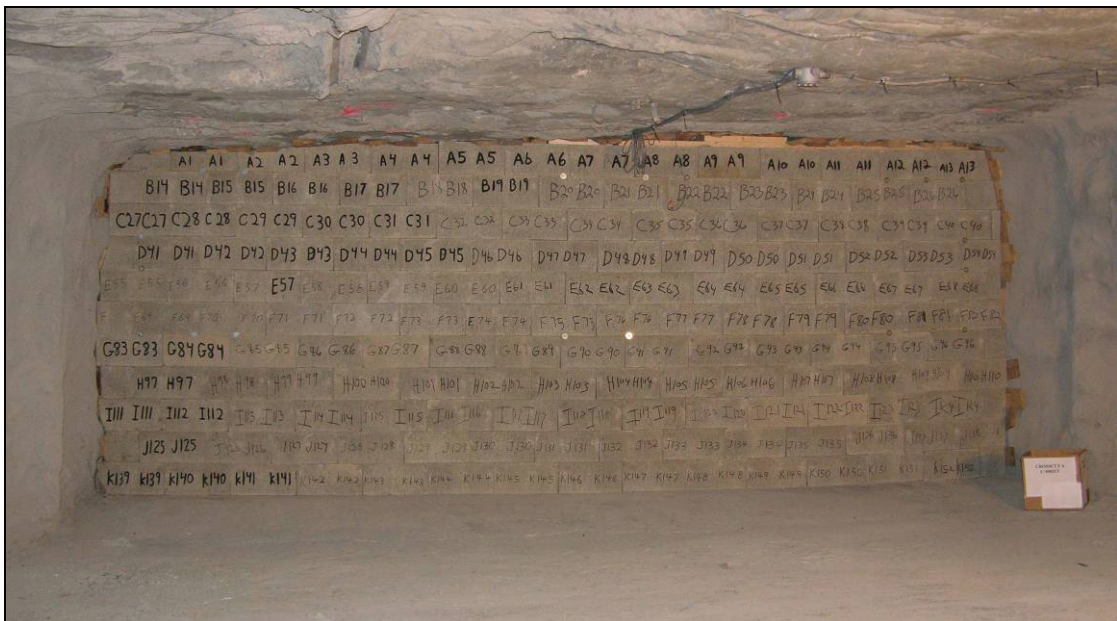 A1 A1 A2 A2 A3 A3 A4 A4 A5 A5 A6 A6 A7 A7 A8 A8 A9 A9 A10 A10 A11 A11 A12 A12 A13 A13
B14 B14 B15 B15 B16 B16 B17 B17 B18 B18 B19 B19 B20 B20 B21 B21 B22 B22 B23 B23 B24 B24 B25 B25 B26 B26
C27 C27 C28 C28 C29 C29 C30 C30 C31 C31 C32 C32 C33 C33 C34 C34 C35 C35 C36 C36 C37 C37 C38 C38 C39 C39 C40 C40
D41 D41 D42 D42 D43 B43 D44 D44 D45 B45 D46 D46 D47 D47 D48 D48 D49 D49 D50 D50 D51 D51 D52 D52 D53 D53 D54 D54
E55 E55 E56 E56 E57 E57 E58 E58 E59 E59 E60 E60 E61 E61 E62 E62 E63 E63 E64 E64 E65 E65 E66 E66 E67 E67 E68 E68
F69 F70 F70 F71 F71 F72 F72 F73 F73 E74 F74 F75 F75 F76 F76 F77 F77 F78 F78 F79 F79 F80 F80 F81 F81 F82 F82
G83 G83 G84 G84 G85 G85 G86 G86 G87 G87 G88 G88 G89 G89 G90 G90 G91 G91 G92 G92 G93 G93 G94 G94 G95 G95 G96 G96
H97 H97 H98 H98 H99 H99 H100 H100 H101 H101 H102 H102 H103 H103 H104 H104 H105 H105 H106 H106 H107 H107 H108 H108 H109 H109 H110 H110
I111 I111 I112 I112 I113 I113 I114 I114 I115 I115 I116 I116 I117 I117 I118 I118 I119 I119 I120 I120 I121 I121 I122 I122 I123 I123 I124 I124
J125 J125 J126 J126 J127 J127 J128 J128 J129 J129 J130 J130 J131 J131 J132 J132 J133 J133 J134 J134 J135 J135 J136 J136 J137 J137 J138
K139 K139 K140 K140 K141 K141 K142 K142 K143 K143 K144 K144 K145 K145 K146 K146 K147 K147 K148 K148 K149 K149 K150 K150 K151 K151 K152 K152